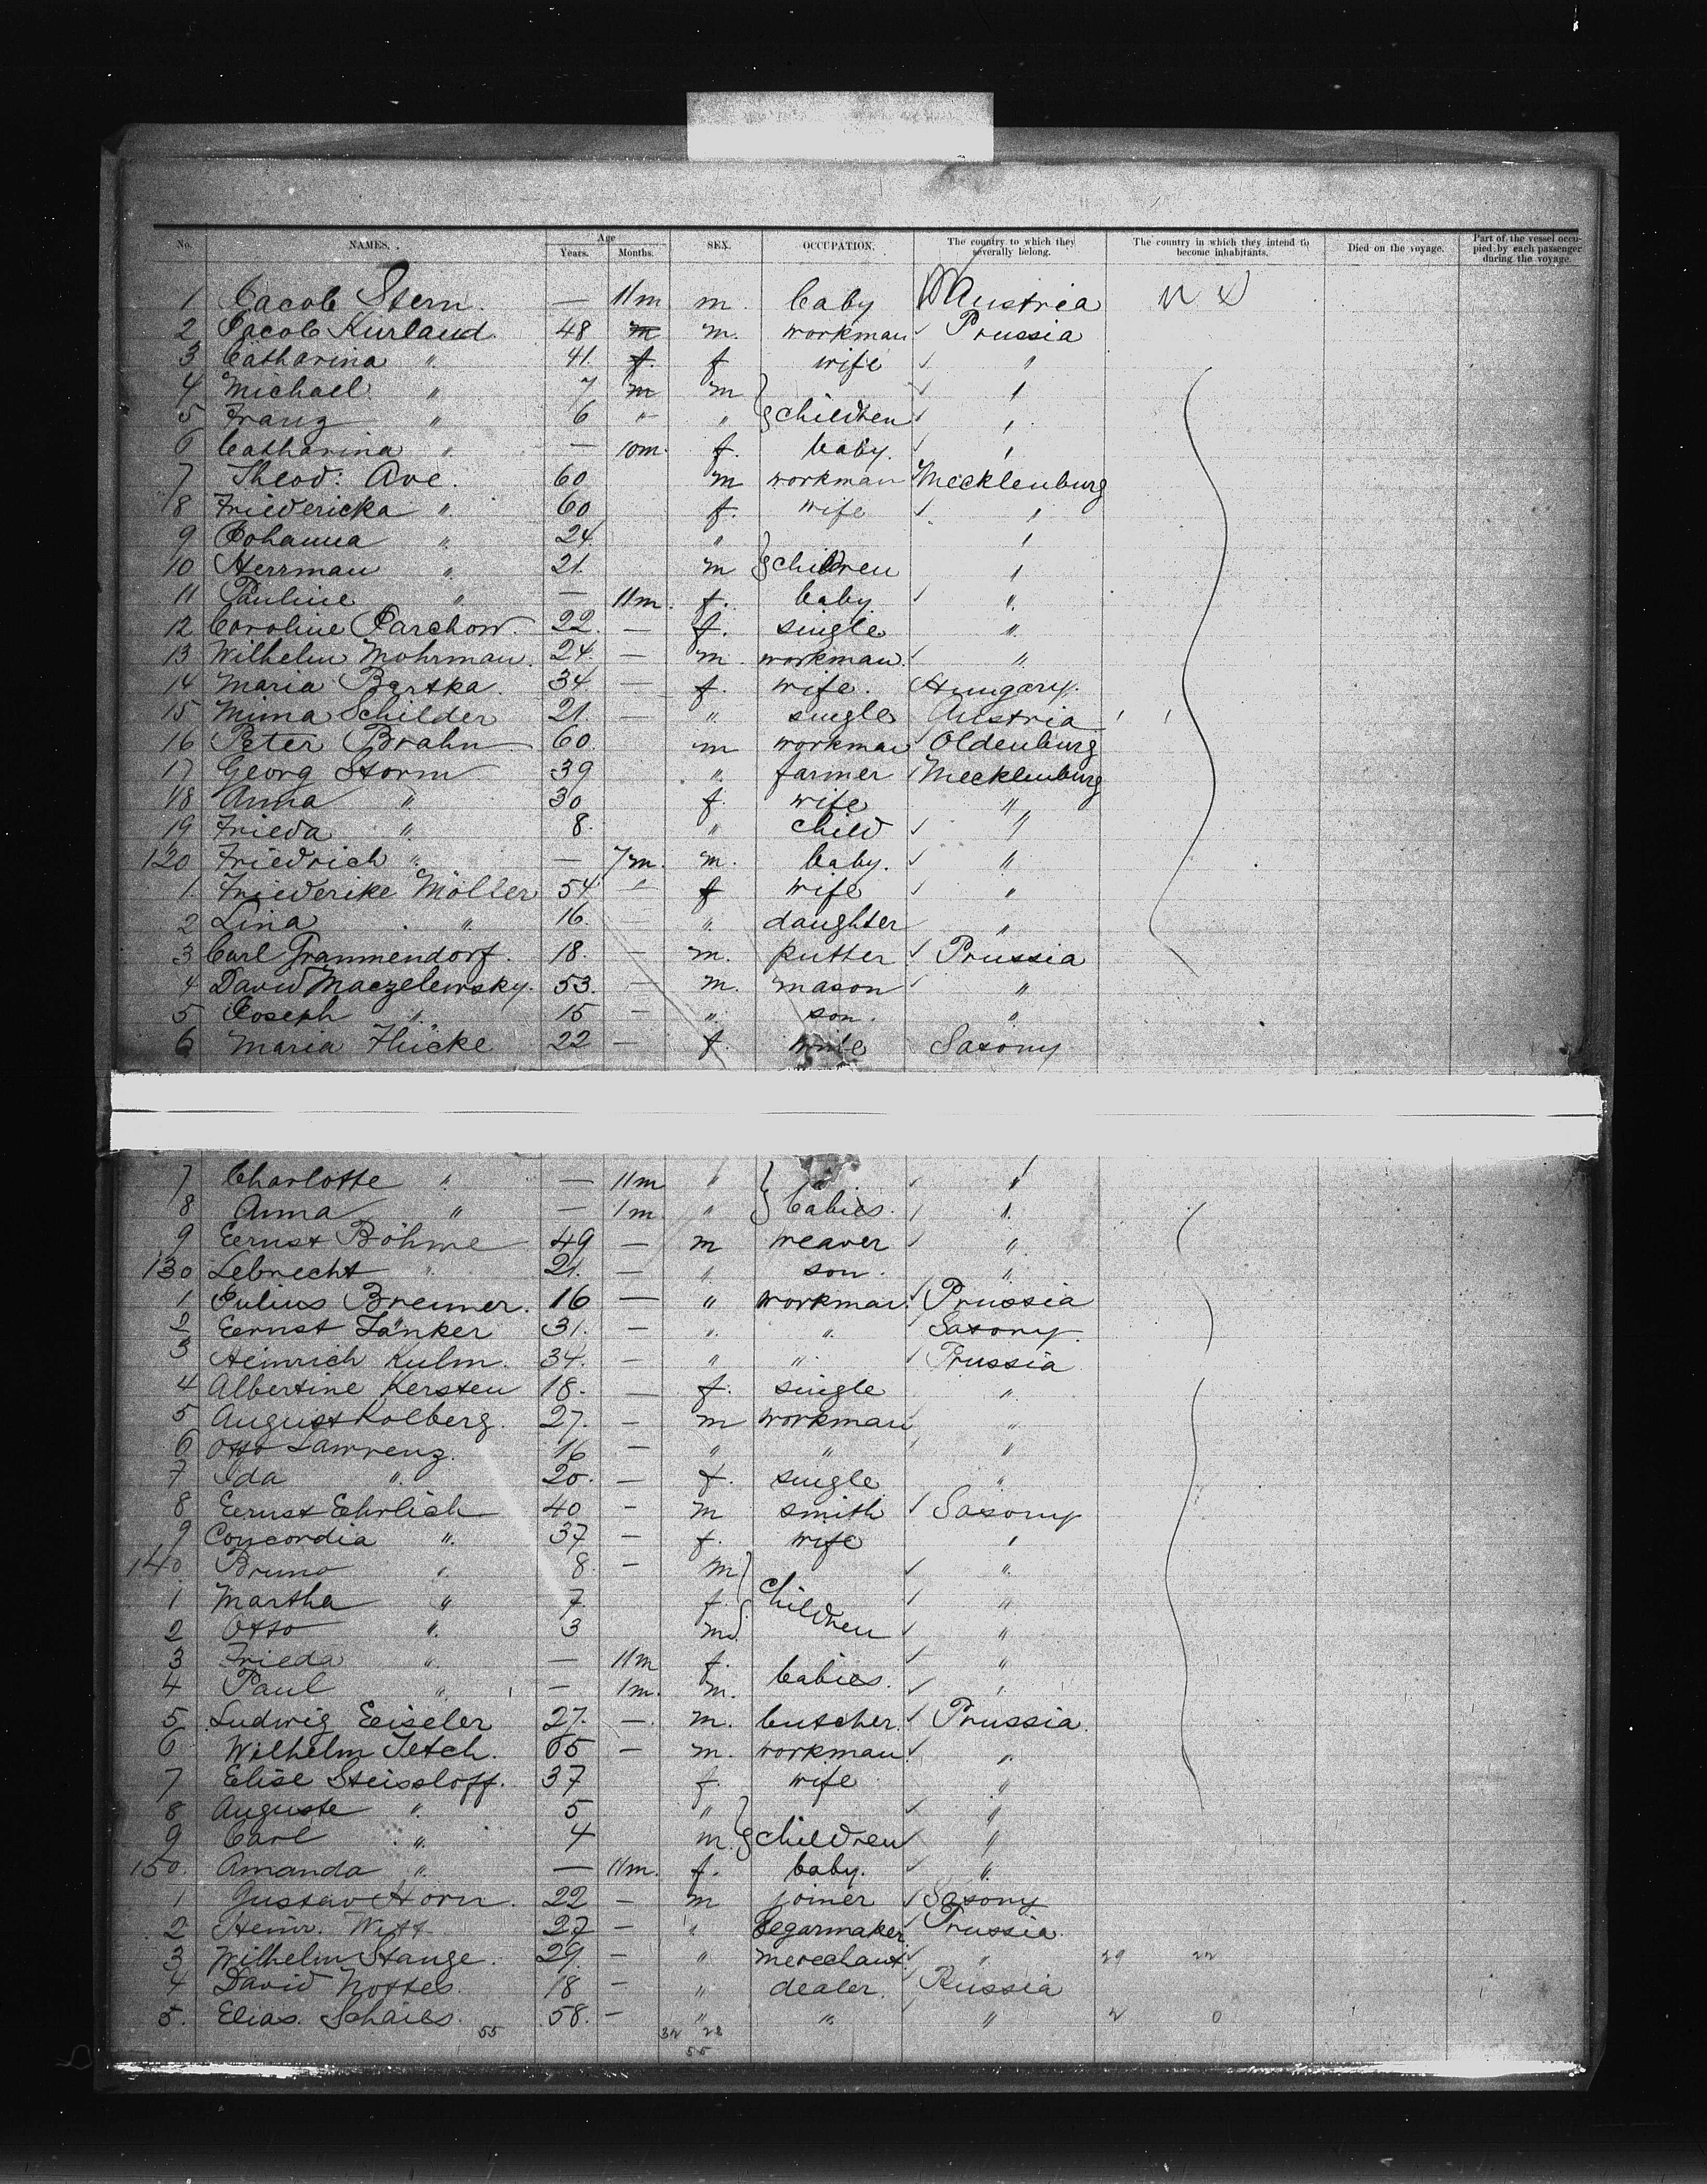 No. NAMES. Age Years. Months. SEX. OCCUPATION. The country to which they severally belong. The country in which they intend to become inhabitants. Died on the voyage. Part of the vessel occupied by each passenger during the voyage.
1 Jacob Stern. — 11m m. baby Austria
2 Jacob Kurland 48 m m. workman Prussia
3 Catharina " 41. f. f wife "
4 Michael " 7 m m "
5 Franz " 6 " " children "
6 Catharina " — 10m. f. baby. "
7 Theod: Ave. 60 m workman Mecklenburg
8 Friedericka " 60 f. wife "
9 Johanna " 24. " "
10 Herrman " 21. m children "
11 Pauline " — 11m. f. baby "
12 Caroline Parchow. 22. — f. single "
13 Wilhelm Mohrman. 24. — m. workman. "
14 Maria Bartka. 34 — f. wife. Hungary.
15 Mima Schilder 21. — " single Austria
16 Peter Brahn 60. m workman Oldenburg
17 Georg Storm 39 " farmer Mecklenburg
18 Anna " 30 f. wife "
19 Frieda " 8. " child "
120 Friedrich " — 7m. m. baby. "
1. Friederike Möller 54 " f wife "
2 Lina " 16. — " daughter "
3 Carl Grammendorf. 18. — m. kutter Prussia
4 David Maczelewsky. 53. — m. mason "
5 Joseph " 15 — " son. "
6 Maria Flücke 22 — f. wife Saxony
7 Charlotte " — 11m " "
8 Anna " — 1m " babies. "
9 Eernst Böhme 49 — m weaver "
130 Lebrecht " 21. — " son. "
1 Julius Bremer. 16 — " workman. Prussia
2 Eernst Jänker 31. — " " Saxony.
3 Heinrich Kulm. 34. — " " Prussia
4 Albertine Kersten 18. — f. single "
5 August Kolberg. 27. — m workman "
6 Otto Lawrenz. 16 — " " "
7 Ida " 20. — f. single "
8 Eernst Ehrlich 40 — m smith Saxony
9 Concordia " 37 — f. wife "
140. Bruno " 8. — m "
1 Martha " 7. f. children "
2 Otto " 3 m "
3 Frieda " — 11m f. "
4 Paul " — 1m. m. babies. "
5 Ludwig Eeiseler 27. — m. butcher. Prussia.
6 Wilhelm Tetch. 65 — m. workman. "
7 Elise Steissloff. 37 f. wife "
8 Auguste " 5 " "
9 Carl " 4 m. children "
150. Amanda " — 11m. f. baby. "
1 Gustav Horn. 22 — m joiner Saxony
2 Heinr. Witt 27 — " segarmaker Prussia.
3 Wilhelm Stange. 29. — " merechant. " 29 22
4 David Nottes. 18 — " dealer. Russia
5. Elias. Schaies. 58. — " " " 2 0
55 32 23
55